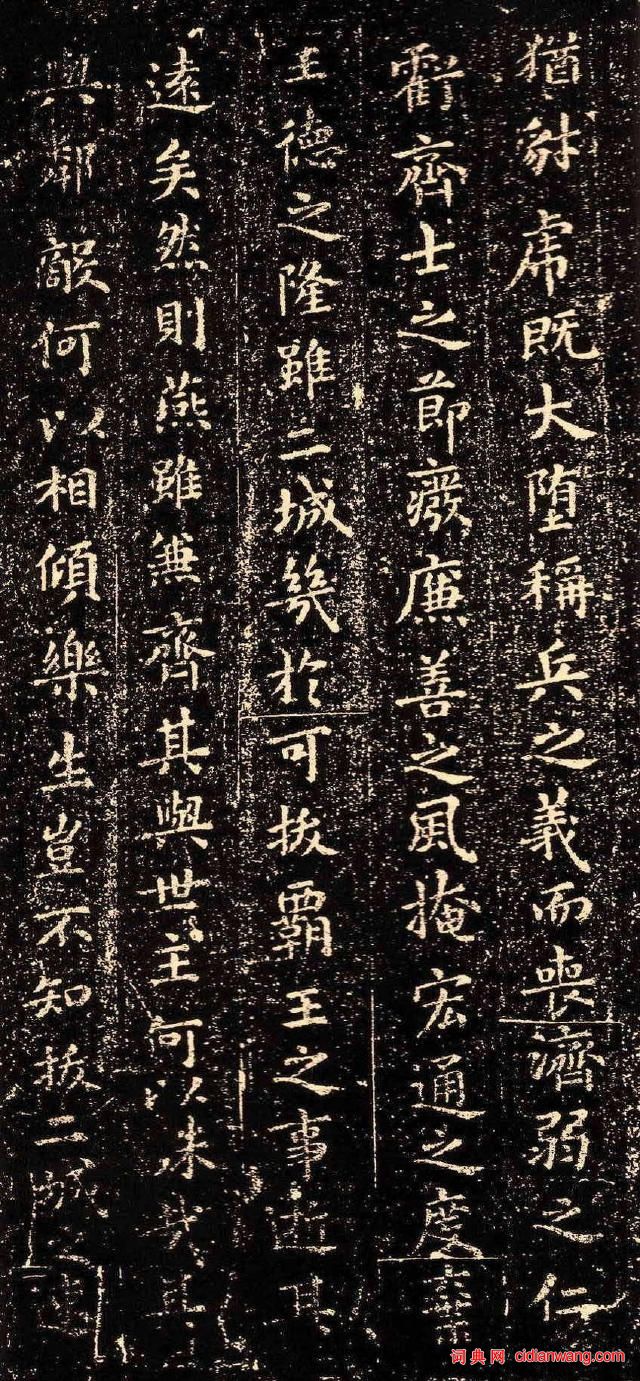 猶豺虎既大墮稱兵之義而喪濟弱之仁
虧齊士之節廢廉善之風掩宏通之度棄
王德之隆雖二城幾於可拔霸王之事逝其
遠矣然則燕雖兼齊其與世主何以殊哉其
與鄰敵何以相傾樂生豈不知拔二城之速
词典网 cidianwang.com